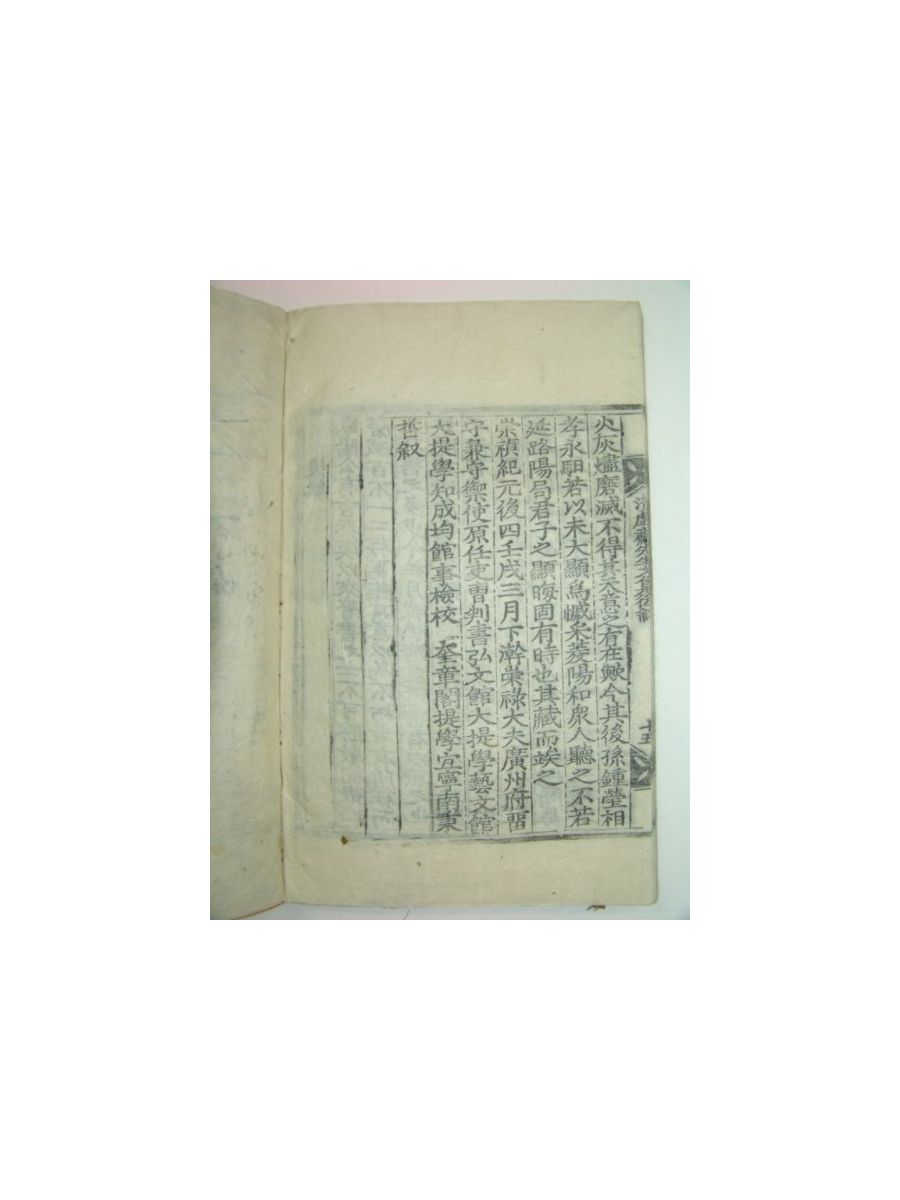 火灰燼磨滅不得其天意之有在歟今其後孫鍾瑩相
孝永馹若以未大顯爲慽采菱陽和衆人聽之不若
延路陽局君子之顯晦固有時也其藏而竢之
崇禎紀元後四壬戌三月下澣崇祿大夫廣州府留
守兼守禦使原任吏曹判書弘文館大提學藝文館
大提學知成均館事檢校 奎章閣提學宜寧南秉
哲叙
先生
十五